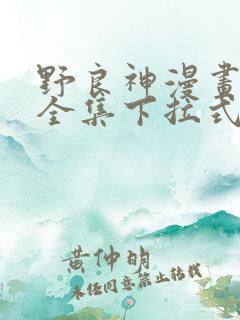 野良神漫畫
全集下拉式
黄仲明
未经同意禁止转载